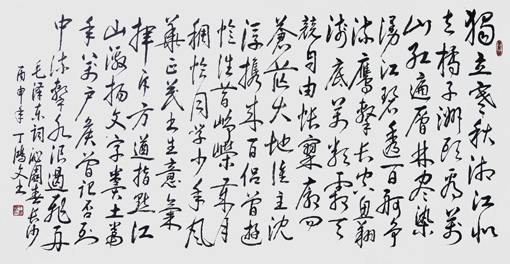 獨立寒秋湘江北
去橘子洲頭看萬
山紅遍層林盡染
漫江碧透百舸爭
流鷹擊長空魚翔
淺底萬類霜天
競自由悵寥廓問
蒼茫大地誰主沈
浮攜來百侶曾遊
憶往昔崢嶸歲月
稠恰同學少年風
華正茂書生意氣
揮斥方遒指點江
山激揚文字糞土當
年萬戶侯曾記否到
中流擊水浪遏飛舟
毛澤東詞沁園春長沙
丙申年丁鴻文